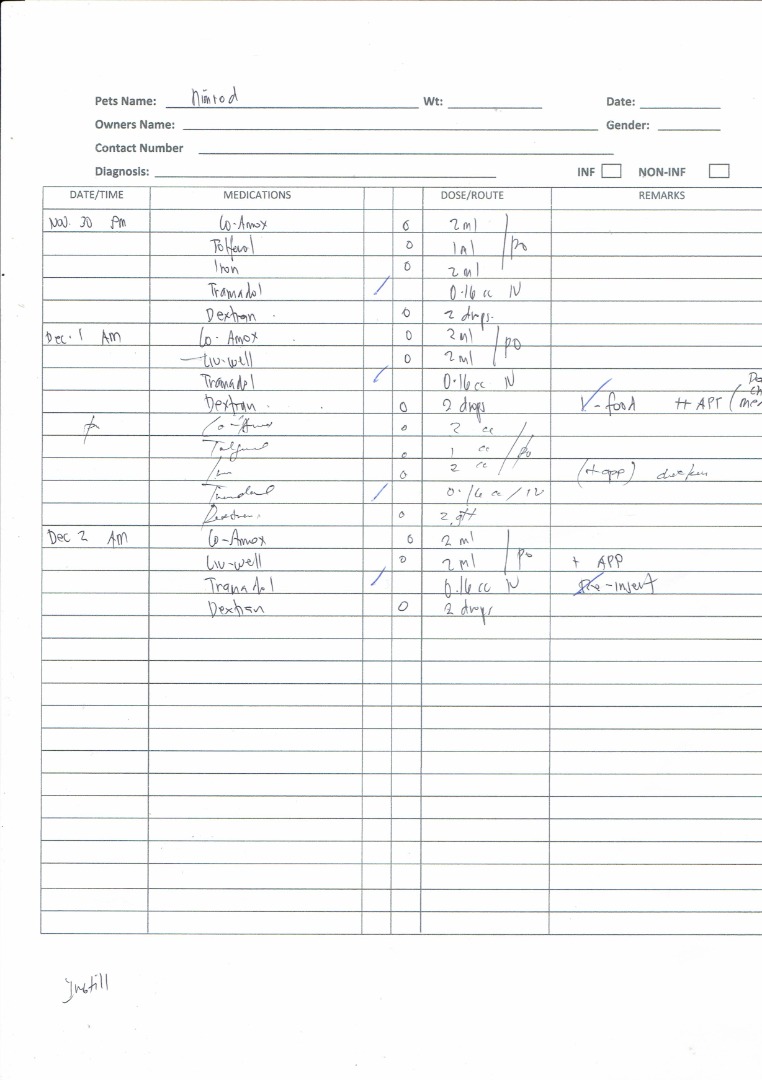 Pets Name: Nimrod Wt: Date:
Owners Name: Gender:
Contact Number
Diagnosis: INF NON-INF
DATE/TIME MEDICATIONS DOSE/ROUTE REMARKS
Nov. 30 Pm Co-Amox 0 2 ml
0 1ml po
Iron 0 2 ml
Tramadol / 0.16 cc IV
Dextran 0 2 drops.
Dec. 1 AM Co-Amox 0 2 ml
Liv-well 0 2 ml PO
Tramadol / 0.16 cc IV
Dextran 0 2 drops V - food
Co-Amox 0 2 cc
0 1 cc /po
0 2 cc
Tramadol / 0.16 cc / IV
Dextran 0 2 gtt
Dec 2 AM Co-Amox 0 2 ml
Liv-well 0 2 ml po + APP
Tramadol / 0.16 cc IV Re-insert
Dextran 0 2 drops